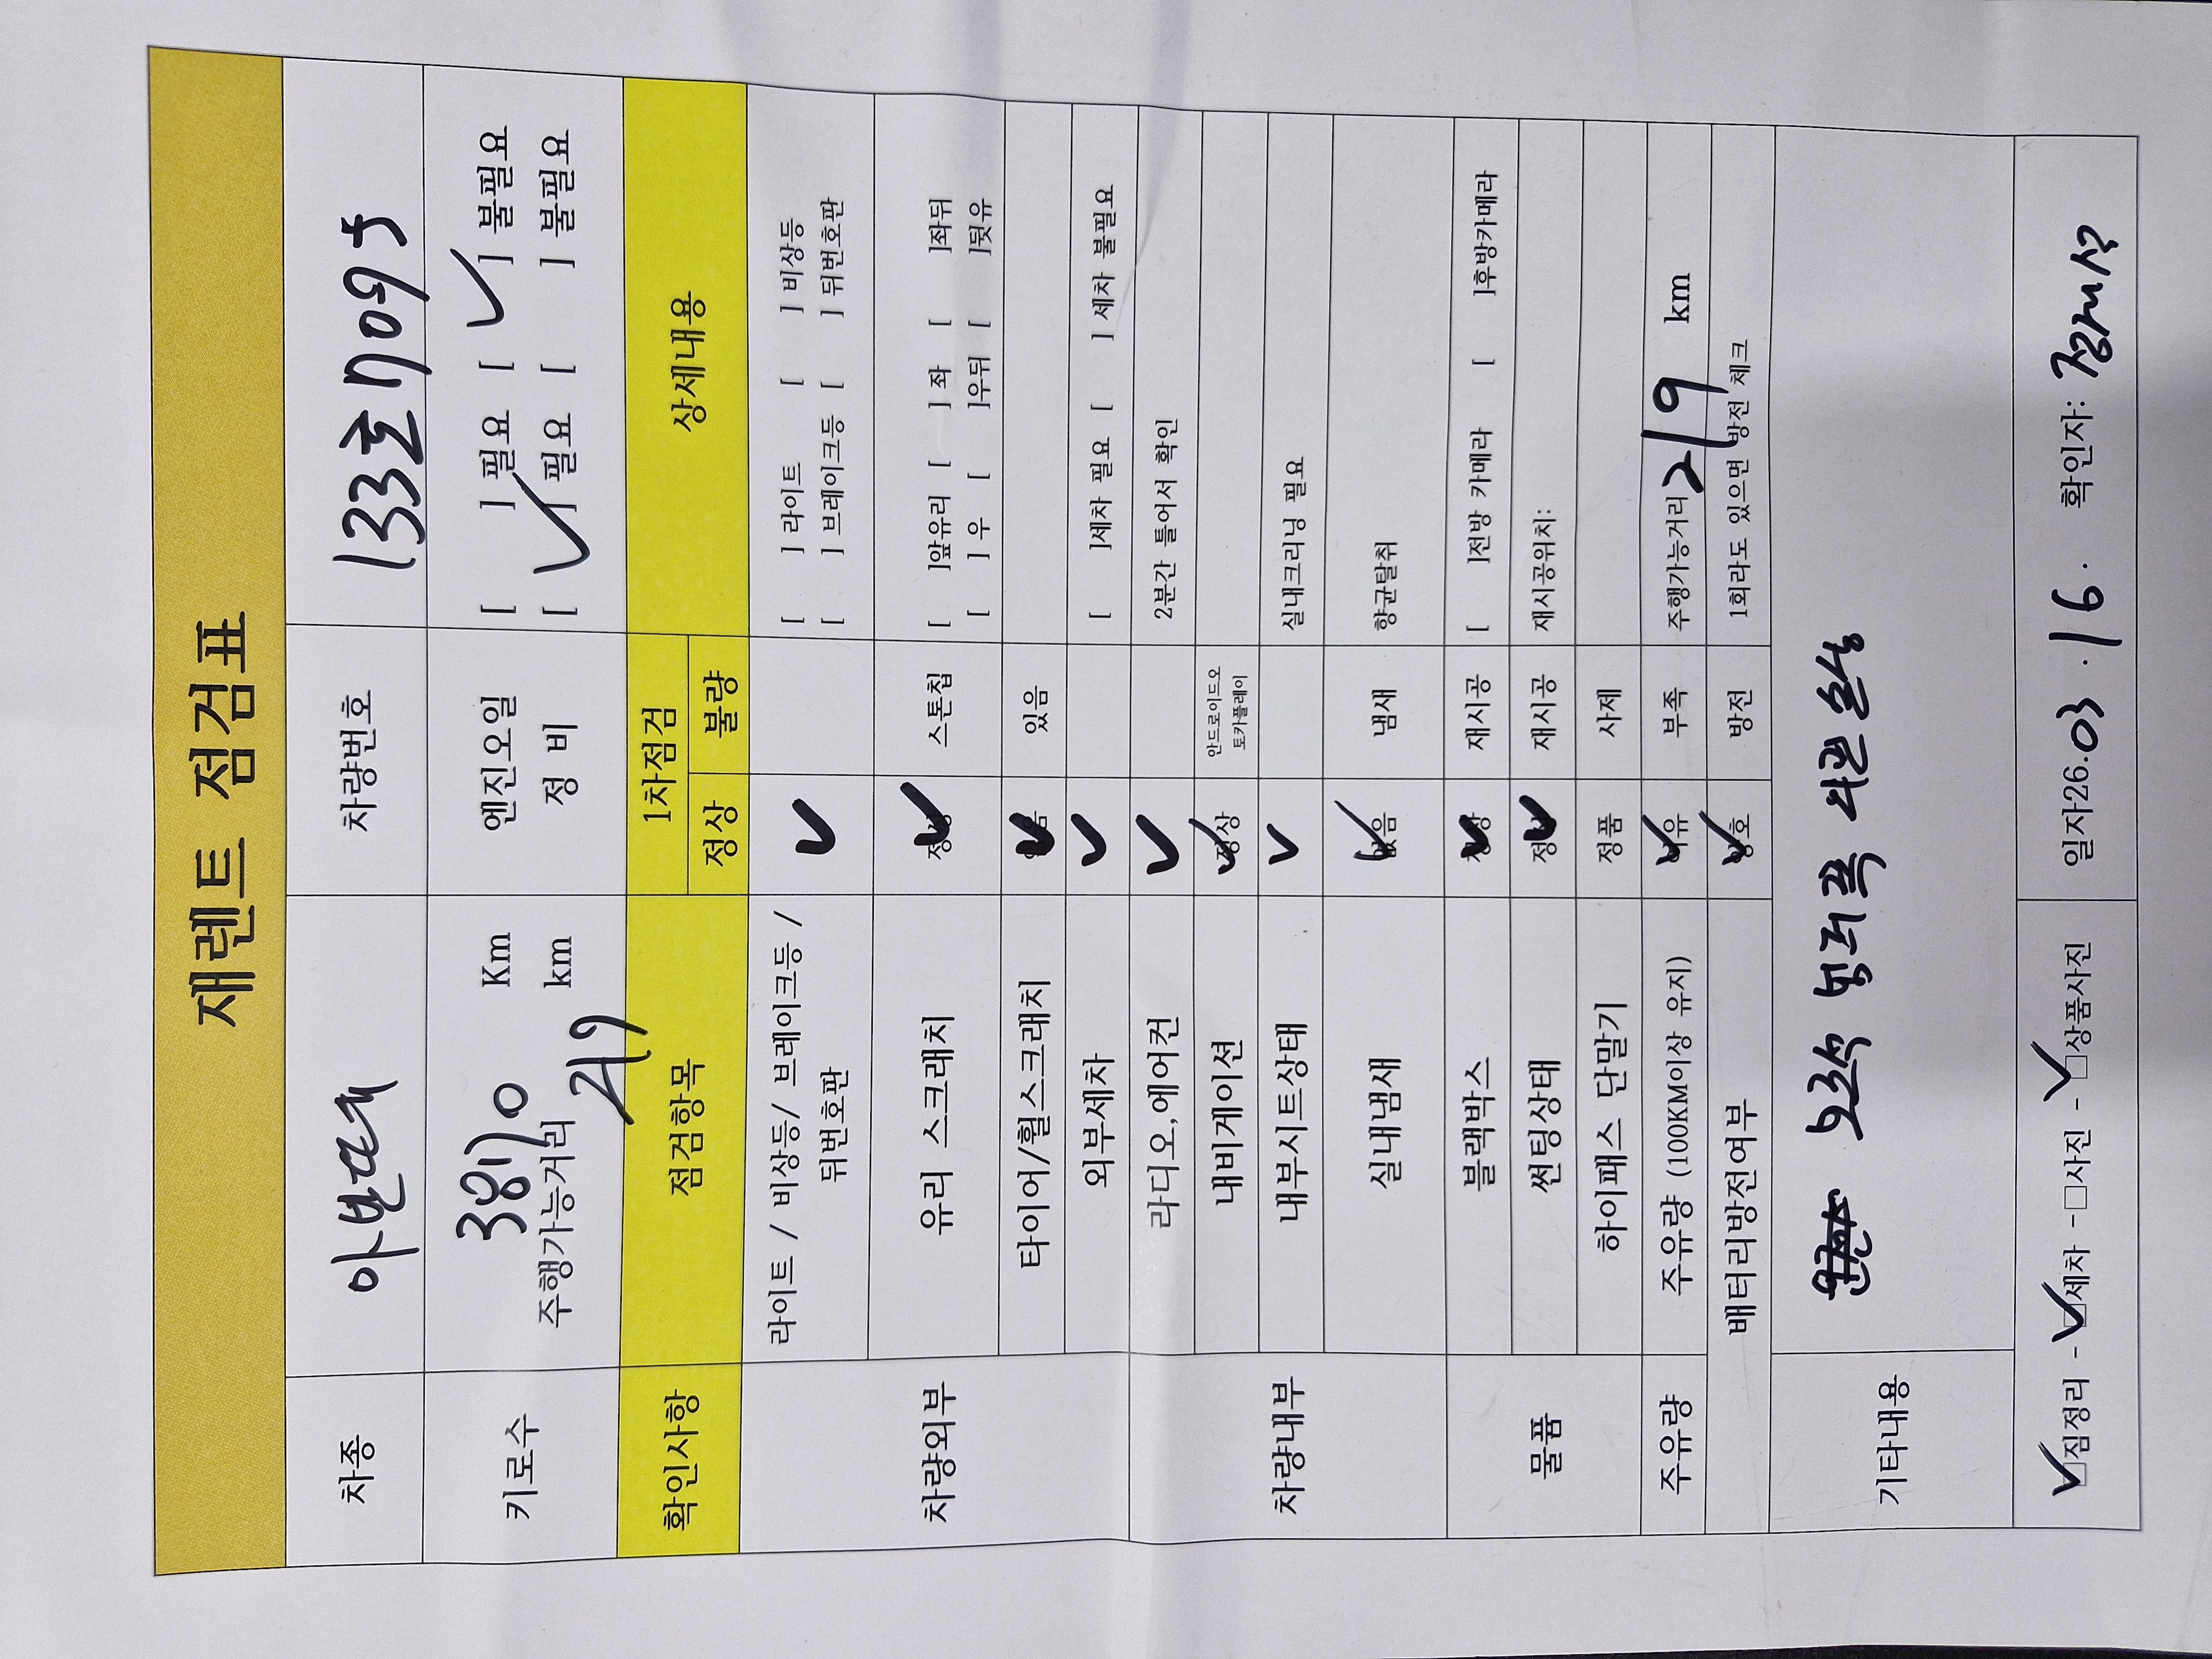 재렌트 점검표
차종 아반떼 차량번호 133호7095
키로수 38170 Km 엔진오일 [ ] 필요 [ ✓ ] 불필요
주행가능거리 219 km 정 비 [ ✓ ] 필요 [ ] 불필요
확인사항 점검항목 1차점검 상세내용
정상 불량
차량외부 라이트 / 비상등/ 브레이크등 / 뒤번호판 ✓ [ ] 라이트 [ ] 비상등
[ ] 브레이크등 [ ] 뒤번호판
유리 스크래치 ✓ 스톤칩 [ ]앞유리 [ ] 좌 [ ]좌뒤
[ ] 우 [ ]우뒤 [ ]뒷유
타이어/휠스크래치 ✓ 있음
외부세차 ✓ [ ]세차 필요 [ ] 세차 불필요
차량내부 라디오,에어컨 ✓ 2분간 틀어서 확인
내비게이션 ✓ 정상 안드로이드오토카플레이
내부시트상태 ✓ 실내크리닝 필요
실내냄새 ✓ 없음 냄새 향균탈취
물품 블랙박스 ✓ 재시공 [ ]전방 카메라 [ ]후방카메라
썬팅상태 ✓ 재시공 재시공위치:
하이패스 단말기 정품 사제
주유량 주유량 (100KM이상 유지) ✓ 부족 주행가능거리 219 km
배터리방전여부 ✓ 양호 방전 1회라도 있으면 방전 체크
기타내용 보조석 범퍼쪽 사진 손상
✓짐정리 - ✓세차 - □사진 - ✓상품사진 일자26.03.16. 확인자: